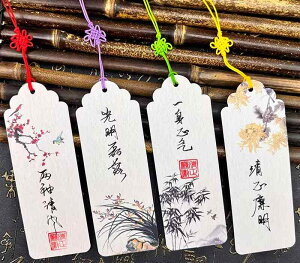 两袖清风
光明磊落
一身正气
清正廉明